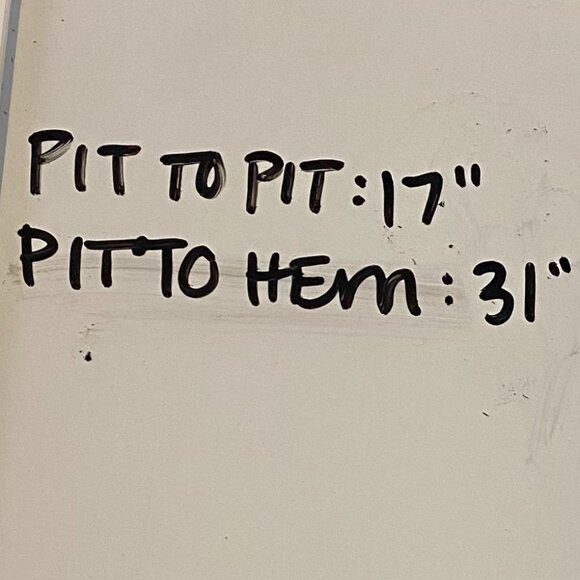 PIT TO PIT: 17"
PIT TO HEM: 31"